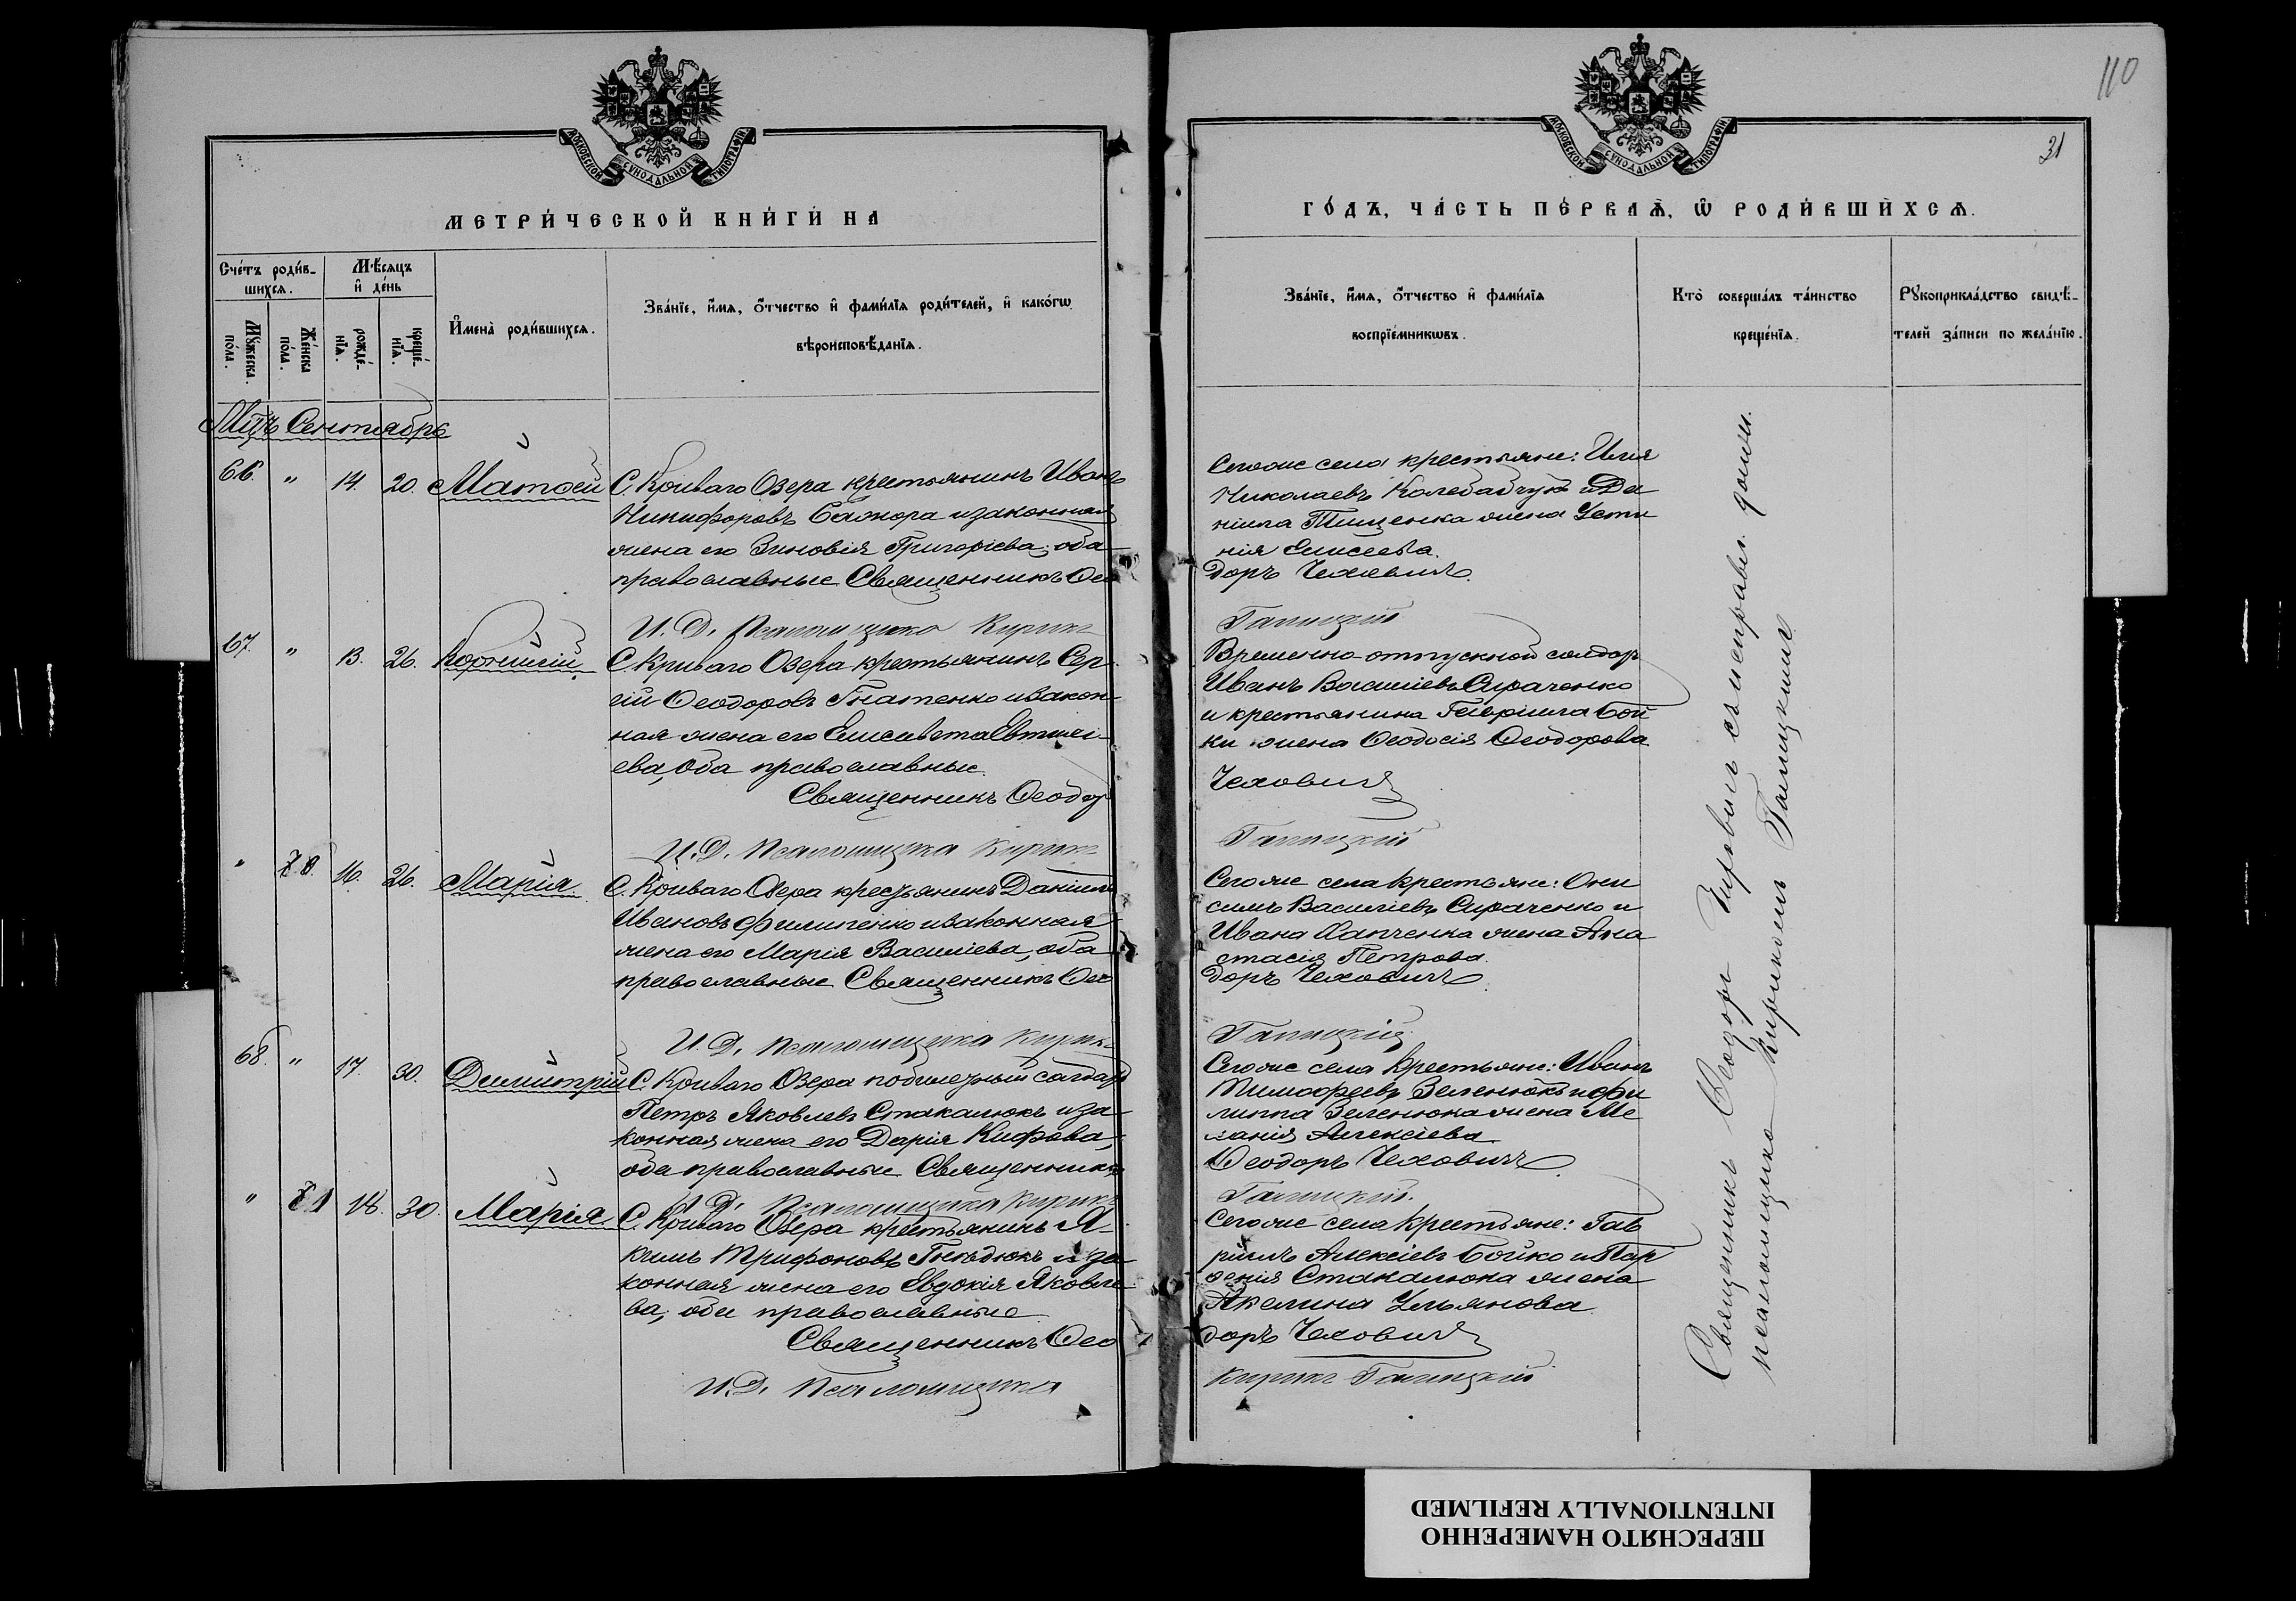 110
31
МОСКОВСКОЙ СУНОДАЛЬНОЙ ТИПОГРАФІИ
МОСКОВСКОЙ СУНОДАЛЬНОЙ ТИПОГРАФІИ
МЕТРИ́ЧЕСКОЙ КНИ́ГИ НА
ГО́ДЪ, ЧА́СТЬ ПЕ́РВАѦ, Ѡ РОДИ́ВШИХСѦ.
Сче́тъ роди́в-
шихсѧ.
Мꙋ́жеска
по́ла.
Же́нска
по́ла.
Мѣ́сѧцъ
и҆ де́нь
рожде́-
нїѧ.
креще́-
нїѧ.
И҆мена̀ роди́вшихсѧ.
Зва́нїе, и҆́мѧ, ѻ҆́тчество и҆ фами́лїѧ роди́телей, и҆ како́гѡ
вѣроисповѣ́данїѧ.
Зва́нїе, и҆́мѧ, ѻ҆́тчество и҆ фами́лїѧ
воспрїе́мникѡвъ.
Кто̀ соверша́лъ та́инство
креще́нїѧ.
Рꙋкоприкла́дство свидѣ́-
телей за́писи по жела́нїю.
Мцъ Сентябрь
66. " 14. 20. Матѳей
С. Криваго Озера крестьянинъ Иванъ
Никифоровъ Сажора и законная
жена его Зиновія Григоріева; оба
православные Священникъ Ѳео
И. Д. Псаломщика Кирикъ
Сегоже села крестьяне: Илія
Николаевъ Колебабчукъ и Да
ніила Тищенка жена Усти
нія Елисеева.
доръ Чеховичъ
Галицкій
67. " 13. 26. Корнилій
С. Криваго Озера крестьянинъ Сер
гій Ѳеодоровъ Гнатенко и закон
ная жена его Елисавета Евтихі-
ева, оба православные.
Священникъ Ѳеодор
И. Д. Псаломщика Кирикъ
Временно отпускной солдат
Иванъ Василіевъ Сираченко
и крестьянина Гавріила Бой
ки жена Ѳеодосія Ѳеодорова
Чеховичъ
Галицкій
" 70. 16. 26. Марія
С. Криваго Озера крестьянинъ Даніилъ
Ивановъ Филипенко и законная
жена его Марія Василіева, оба
православные Священникъ Ѳео
И. Д. Псаломщика Кирикъ
Сегоже села крестьяне: Они
симъ Василіевъ Сираченко и
Ивана Хапченка жена Ана
стасія Петрова.
доръ Чеховичъ
Галицкій
68. " 17. 30. Димитрій
С. Криваго Озера побилетный солдат
Петръ Яковлевъ Стакалюкъ и за
конная жена его Дарія Кифова,
оба православные Священникъ
И. Д. Псаломщика Кирикъ
Сегоже села крестьяне: Иванъ
Тимофеевъ Зеленюкъ и Фи
липпа Зеленюка жена Ме
ланія Алексіева
Ѳеодоръ Чеховичъ
Галицкій.
" 71 18. 30. Марія
С. Криваго Озера крестьянинъ А-
кимъ Трифоновъ Гнѣдюкъ и за
конная жена его Евдокія Яковле
ва, оба православные
Священникъ Ѳео
И. Д. Псаломщика
Сегоже села крестьяне: Гав
ріилъ Алексіевъ Бойко и Пар
ѳенія Стакалюка жена
Акелина Ульянова
доръ Чеховичъ
Кирикъ Галицкій
Священникъ Ѳеодоръ Чеховичъ съ исправл. долж.
псаломщика Кирикомъ Галицкимъ
ПЕРЕСНЯТО НАМЕРЕННО
INTENTIONALLY REFILMED